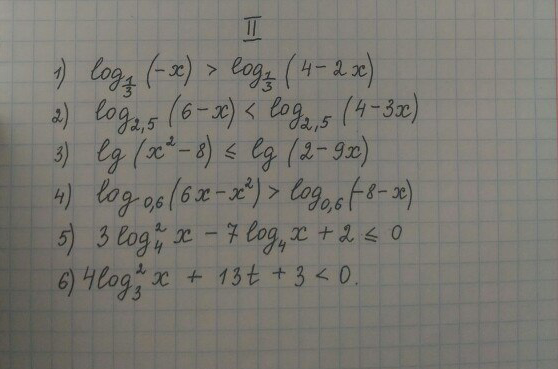 II
1) log_{1/3} (-x) > log_{1/3} (4-2x)
2) log_{2,5} (6-x) < log_{2,5} (4-3x)
3) lg (x²-8) ≤ lg (2-9x)
4) log_{0,6} (6x-x²) > log_{0,6} (-8-x)
5) 3log₄² x - 7log₄ x + 2 ≤ 0
6) 4log₃² x + 13t + 3 < 0.